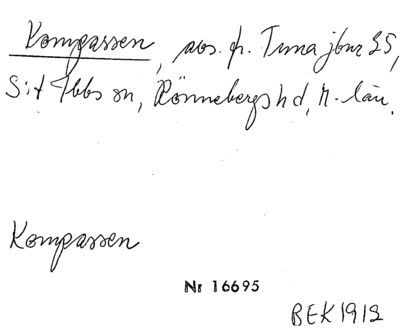 Kompassen, avs. fr. Tuna jbnr 25,
S:t Ibbs sn, Rönnebergs hd, M-län.
Kompassen
Nr 16695
BEK 1912